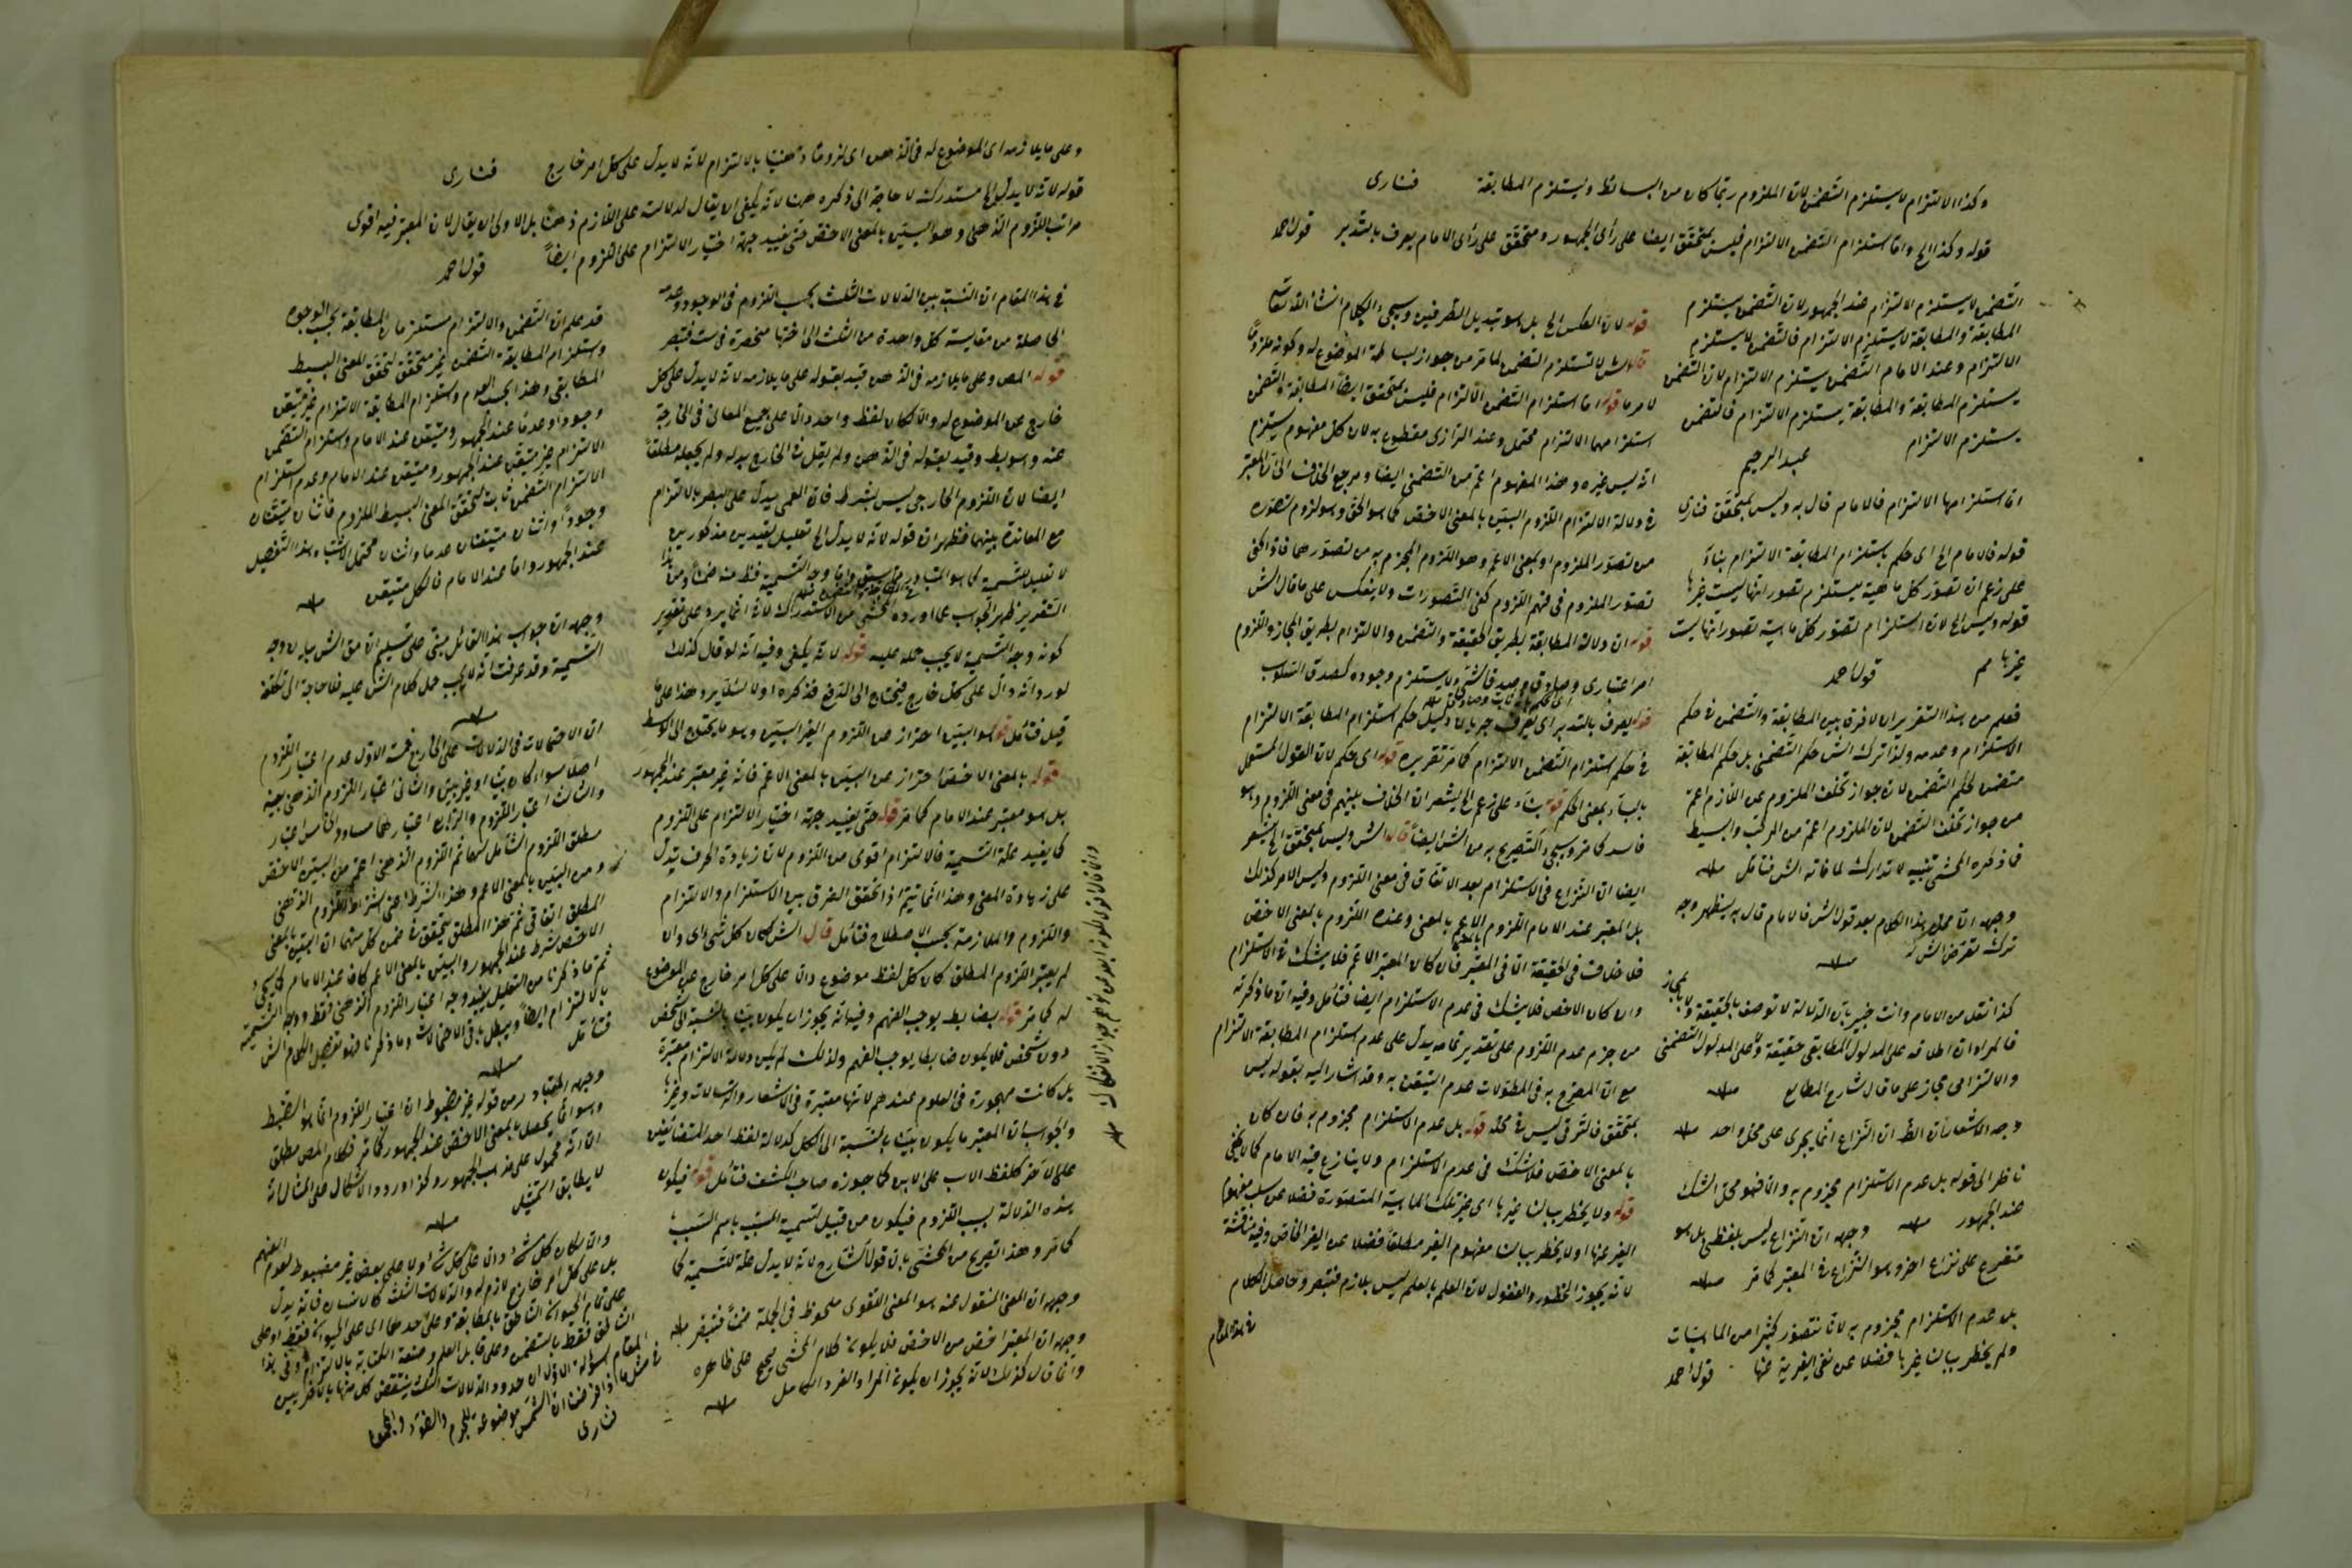 وكذا الالتزام لا يستلزم التضمن لان الملزوم ربما كان من البسائط ويستلزم المطابقة فنارى
قوله وكذا الخ واما استلزام التضمن الالتزام فليس بمتحقق ايضا على رأى الجمهور ومتحقق على رأى الامام يعرف بالتدبر قول احمد
التضمن لا يستلزم الالتزام عند الجمهور لان التضمن يستلزم
المطابقة والمطابقة لا يستلزم الالتزام فالتضمن لا يستلزم
الالتزام وعند الامام التضمن يستلزم الالتزام لان التضمن
يستلزم المطابقة والمطابقة يستلزم الالتزام فالتضمن
يستلزم الالتزام عبد الرحيم
اما استلزامها الالتزام فالامام قال به وليس بمتحقق فنارى
قوله فالامام الخ اى حكم باستلزام المطابقة الالتزام بناء
على زعم ان تصور كل ماهية يستلزم تصور انها ليست غيرها
قوله وليس الخ لان استلزام تصور كل ماهية تصور انها ليست
غيرها مم قول احمد
فعلم من هذا التقرير ان لا فرق بين المطابقة والتضمن فى حكم
الاستلزام وعدمه ولذا ترك الش حكم التضمنى بل حكم المطابقة
متضمن لحكم التضمن لان جواز تخلف الملزوم عن اللازم اعم
من جواز تخلف التضمن لان الملزوم اعم من المركب والبسيط
فما ذكره المحشى تنبيه لا تدارك لما فاته الش فتأمل منه
وجهه ان محل هذا الكلام بعد قول الش فالامام قال به ليظهر وجه
ترك تعرض الش له منه
كذا نقل من الامام وانت خبير بان الدلالة لا توصف بالحقيقة ولا بالمجاز
فالمراد ان اطلاقه على المدلول المطابقى حقيقة وعلى المدلول التضمنى
والالتزامى مجاز على ما قال شارح المطالع منه
وجه الاشعار ان الظ ان النزاع انما يجرى على محل واحد منه
ناظر الى قوله بل عدم الاستلزام مجزوم به والا فهو محل الشك
عند الجمهور منه وجهه ان النزاع ليس بلفظى بل هو
متفرع على نزاع اخر وهو النزاع فى المعتبر كما مر منه
بل عدم الاستلزام مجزوم به لانا نتصور كثيرا من الماهيات
ولم يخطر ببالنا غيرها فضلا عن نفى الغيرية عنها قول احمد
قوله لان العكس الخ بل هو تبديل الطرفين وسيجئ الكلام ان شاء الله تعالى
قال الش لا تستلزم التضمن لما مر من جواز بساطة الموضوع له وكونه ملزوما
لامر ما قوله اما استلزام التضمن الالتزام فليس بمتحقق ايضا المطابقة والتضمن
استلزامهما الالتزام محتمل وعند الرازى مقطوع به لان كل مفهوم يستلزم
انه ليس غيره وهذا المفهوم اعم من التضمنى ايضا ومرجع الخلاف الى ان المعتبر
فى دلالة الالتزام اللزوم البين بالمعنى الاخص كما هو الحق وهو لزوم تصوره
من تصور الملزوم او بمعنى الاعم وهو اللزوم المجزم به من تصورهما فاذا كفى
تصور الملزوم فى فهم اللزوم كفى التصورات ولا ينعكس على ما قال الش
قوله ان دلالة المطابقة بطريق الحقيقة والتضمن والالتزام بطريق المجاز واللزوم
امر اعتبارى وصادق وصدق الشئ لا يستلزم وجوده كصدق السلوب
قوله يعرف بالتدبر اى يعرف جريان دليل حكم استلزام المطابقة الالتزام
فى حكم استلزام التضمن الالتزام كما مر تقريره قوله اى حكم لان القول المستعمل
بالباء بمعنى الحكم قوله بناء على زعم الخ ليشعر ان الخلاف بينهم فى معنى اللزوم وهو
فاسد كما مر وسيجئ التصريح به من الش ايضا قال الش وليس بمتحقق الخ يشعر
ايضا ان النزاع فى الاستلزام بعد الاتفاق فى معنى اللزوم وليس الامر كذلك
بل المعتبر عند الامام اللزوم بالمعنى الاعم وعنده اللزوم بالمعنى الاخص
فلا خلاف فى الحقيقة الا فى المعتبر فان كان المعتبر الاعم فلا يشك فى الاستلزام
وان كان الاخص فلا يشك فى عدم الاستلزام ايضا فتأمل وفيه ان ما ذكرته
من جزم عدم اللزوم على تقدير تمامه يدل على عدم استلزام المطابقة الالتزام
مع ان المصرح به فى المطولات عدم التيقن به وقد اشار اليه بقوله ليس
بمتحقق فالترقى ليس فى محله قوله بل عدم الاستلزام مجزوم به فان كان
بالمعنى الاخص فلا شك فى عدم الاستلزام ولا ينازع فيه الامام كما لا يخفى
قوله ولا يخطر ببالنا غيرها اى غير تلك الماهية المتصورة فضلا عن سلب مفهوم
الغير عنها او لا يخطر ببالنا مفهوم الغير مطلقا فضلا عن الغير الخاص وفيه مناقشة
لانه يجوز الخطور والغفول لان العلم بالعلم ليس بلازم فتبصر وحاصل الكلام
فى هذا المقام
وعلى ما يلازمه اى الموضوع له فى الذهن اى لزوما ذهنيا بالالتزام لانه لا يدل على كل امر خارج فنارى
قوله لانه لا يدل الخ مستدرك لا حاجة الى ذكره هنا لانه يكفى ان يقال لدلالته على اللازم ذهنا بل الاولى ان يقال لان المعتبر فيه اقوى
مراتب اللزوم الذهنى وهو البين بالمعنى الاخص حتى يفيد جهة اختيار الالتزام على اللزوم ايضا قول احمد
فى هذا المقام ان النسبة بين الدلالات الثلث بحسب اللزوم فى الوجود وعدمه
الحاصلة من مقايسة كل واحدة من الثلث الى اختها منحصرة فى ست فتبصر
قوله المص وعلى ما يلازمه فى الذهن قيد بقوله على ما يلازمه لانه لا يدل على كل
خارج عن الموضوع له والا لكان لفظ واحد دالا على جميع المعانى فى الخارجة
عنه وهو بط وقيد بقوله فى الذهن ولم يقل فى الخارج بدله ولم يجعله مطلقا
ايضا لان اللزوم الخارجى ليس بشرط فان العمى يدل على البصر بالالتزام
مع المعاندة بينهما فظهر ان قوله لانه لا يدل الخ تعليل لقيدين مذكورين
لا تعليل للتسمية كما هو المتبادر واما وجه التسمية فظ منه ضمنا ومن هذا
التقرير ظهر الجواب عما اورده المحشى من الاستدراك لانه انما يرد على تقدير
كونه وجه التسمية لا يجب حمله عليه قوله لانه يكفى وفيه انه لو قال كذلك
لورد انه دال على كل خارج فيحتاج الى الدفع فذكره اولا لئلا يرد هذا على ما
قيل فتأمل قوله هو البين احتراز عن اللزوم الغير البين وهو ما يحتاج الى الوسط
قوله بالمعنى الاخص احتراز عن البين بالمعنى الاعم فانه غير معتبر عند الجمهور
بل هو معتبر عند الامام كما مر قوله حتى يفيد جهة اختيار الالتزام على اللزوم
كما يفيد علة التسمية فالالتزام اقوى من اللزوم لان زيادة الحرف يدل
على زيادة المعنى وهذا انما يتم اذا تحقق الفرق بين الاستلزام والالتزام
واللزوم والملازمة بحسب الاصطلاح فتأمل قال الش لكان كل شئ اى وان
لم يعتبر اللزوم المطلق كان كل لفظ موضوع دالا على كل امر خارج عن الموضوع
له كما مر قوله بضابط يوجب الفهم وفيه انه يجوز ان يكون بينا بالنسبة الى شخص
دون شخص فلا يكون ضابطا يوجب الفهم ولذلك لم يكن دلالة الالتزام معتبرة
بل كانت مهجورة فى العلوم عندهم لانها معتبرة فى الاشعار والرسالات وغيرها
والجواب ان المعتبر ما يكون بينا بالنسبة الى الكل كدلالة لفظ احد المتضايفين
على الاخر كلفظ الاب على الابن كما جوزه صاحب الكشف فتأمل قوله فيكون
هذه الدلالة بسبب اللزوم فيكون من قبيل تسمية المسبب باسم السبب
كما مر وهذا التصريح من المحشى بان قول الشارح لانه لا يدل علة للتسمية كما
وجهه ان المعنى المنقول عنه هو المعنى اللغوى ملحوظ فى الجملة ضمنا فتبصر منه
وجهه ان المعتبر اخص من الاخص فلا يكون كلام المحشى صحيح على ظاهره
وانما قال كذلك لانه يجوز ان يكون المراد الفرد الكامل منه
قد علم ان التضمن والالتزام مستلزمان المطابقة بحسب الوجود
واستلزام المطابقة التضمن غير متحقق لتحقق المعنى البسيط
المطابقى وهذا بحسب العدم واستلزام المطابقة الالتزام غير متيقن
وجودا وعدما عند الجمهور ومتيقن عند الامام واستلزام التضمن
الالتزام غير متيقن عند الجمهور ومتيقن عند الامام وعدم استلزام
الالتزام التضمن ثابت لتحقق المعنى البسيط الملزوم فاثنان متيقنان
وجودا واثنان متيقنان عدما واثنان محتمل الاشتباه هذا التفصيل
عند الجمهور واما عند الامام فالكل متيقن منه
وجهه ان جواب هذا القائل مبنى على تسليم ان مق الش بيان وجه
التسمية وقد عرفت انه لا يجب حمل كلام الش عليه فلا حاجة الى تكلفه
منه
ان الاحتمالات فى الدلالات على الخارج خمسة الاول عدم اعتبار اللزوم
اصلا سواء كان بينا او غير بين والثانى اعتبار اللزوم الذهنى بعينه
والثالث اعتبار اللزوم والرابع اعتبارهما معا والخامس اعتبار
مطلق اللزوم الشامل لهما ثم اللزوم الذهنى اعم من البين الاخص
ومن البين بالمعنى الاعم وهذا الشرط اعنى اشتراط اللزوم الذهنى
المطلق اتفاقى ثم هذا المطلق يتحقق فى ضمن كل منهما ان البين بالمعنى
الاخص شرط عند الجمهور والبين بالمعنى الاعم كاف عند الامام كما سيجئ
ثم ما ذكرنا من التعليل يفيد وجه اعتبار اللزوم الذهنى فقط ووجه التسمية
بالالتزام ايضا ويبطل باقى الاحتمالات وما ذكرنا هو تفصيل الكلام الش
فتأمل منه
وجهه المتبادر من قوله غير مضبوط ان اعتبار اللزوم انما هو الضبط
وهو انما يحصل بالمعنى الاخص عند الجمهور كما مر فكلام المص مطلق
الا انه محمول على مذهب الجمهور وكذا ورود الاشكال على المثال انه
لا يطابق التمثيل منه
والا لكان كل شئ دالا على كل شئ اولا على بعض غير مضبوط لعدم الفهم
بل على كل امر خارج لازم له والدلالات الثلث كالانسان فانه يدل
على تمام الحيوان الناطق بالمطابقة وعلى احدهما اى على الحيوان فقط او على
الناطق فقط بالتضمن وعلى قابل العلم وصنعة الكتابة بالالتزام وفى هذا
المقام اسئلة الاول ان حدود الدلالات الثلث ينتقض كل منها بالاخريين
فى مثل ما اذا فرضنا ان الشمس موضوعة للجرم والضوء والمجموع
فنارى